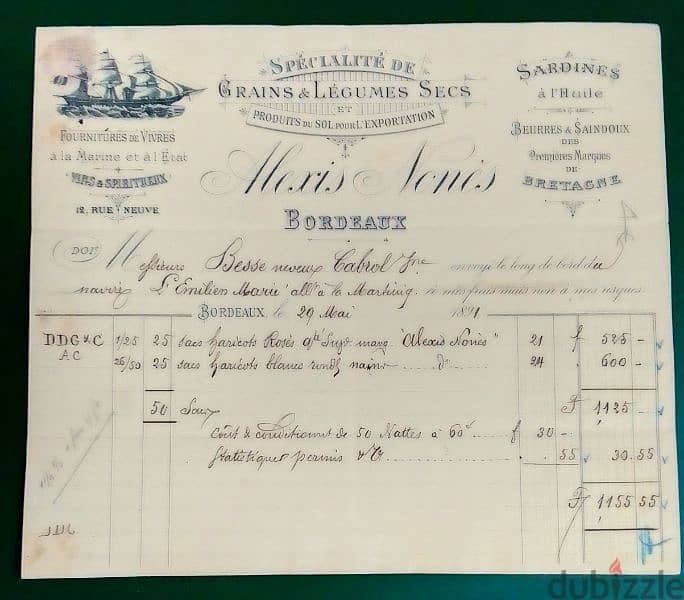 SPÉCIALITÉ DE
GRAINS & LÉGUMES SECS
ET
PRODUITS DU SOL POUR L'EXPORTATION
FOURNITURES DE VIVRES
à la Marine et à l'Etat
VINS & SPIRITUEUX
12, RUE NEUVE
SARDINES
à l'Huile
BEURRES & SAINDOUX
DES
Premières Marques
DE
BRETAGNE
Alexis Nonès
BORDEAUX
DOIT Messieurs Besse neveux Cabrol Jne envoyé le long de bord du
navire L'Emilien Marie allt à la Martiniq. à mes frais mais non à mes risques
BORDEAUX, le 29 Mai 1891
DDG & C 1/25 25 sacs haricots Rosés marq "Alexis Nonès" 21 f 525 -
AC 26/50 25 sacs haricots blancs nains do 24 . 600 -
50 Sacs F 1125 -
Coût & conditionnt de 50 Nattes à 60c f 30 -
Statistique permis 55 30.55
F 1155 55
dubizzle